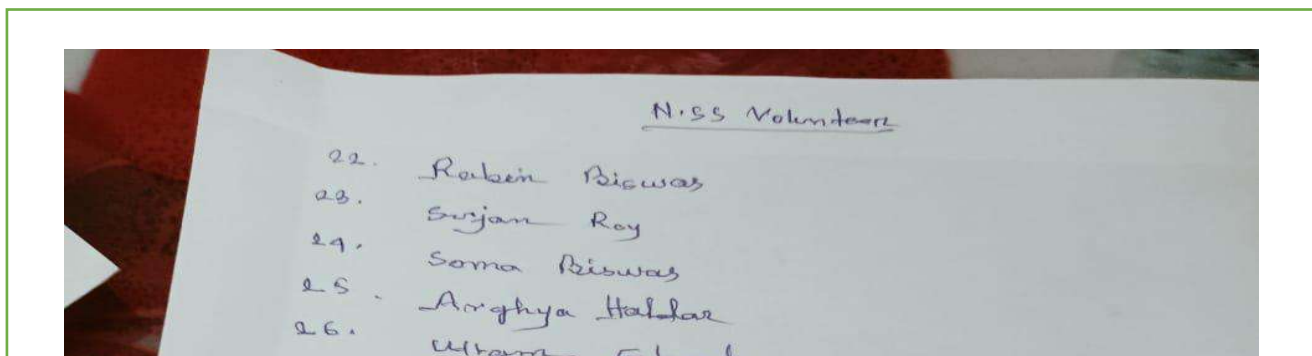 N.SS Volunteer
22. Rabin Biswas
23. Surjan Roy
24. Soma Biswas
25. Arghya Haldar
26. Uttam